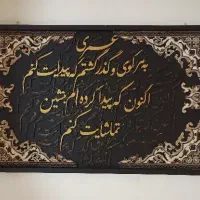 عمری
به هر کوی و گذر گشتم که پیدایت کنم
اکنون که پیدا کرده ام بنشین
تماشایت کنم